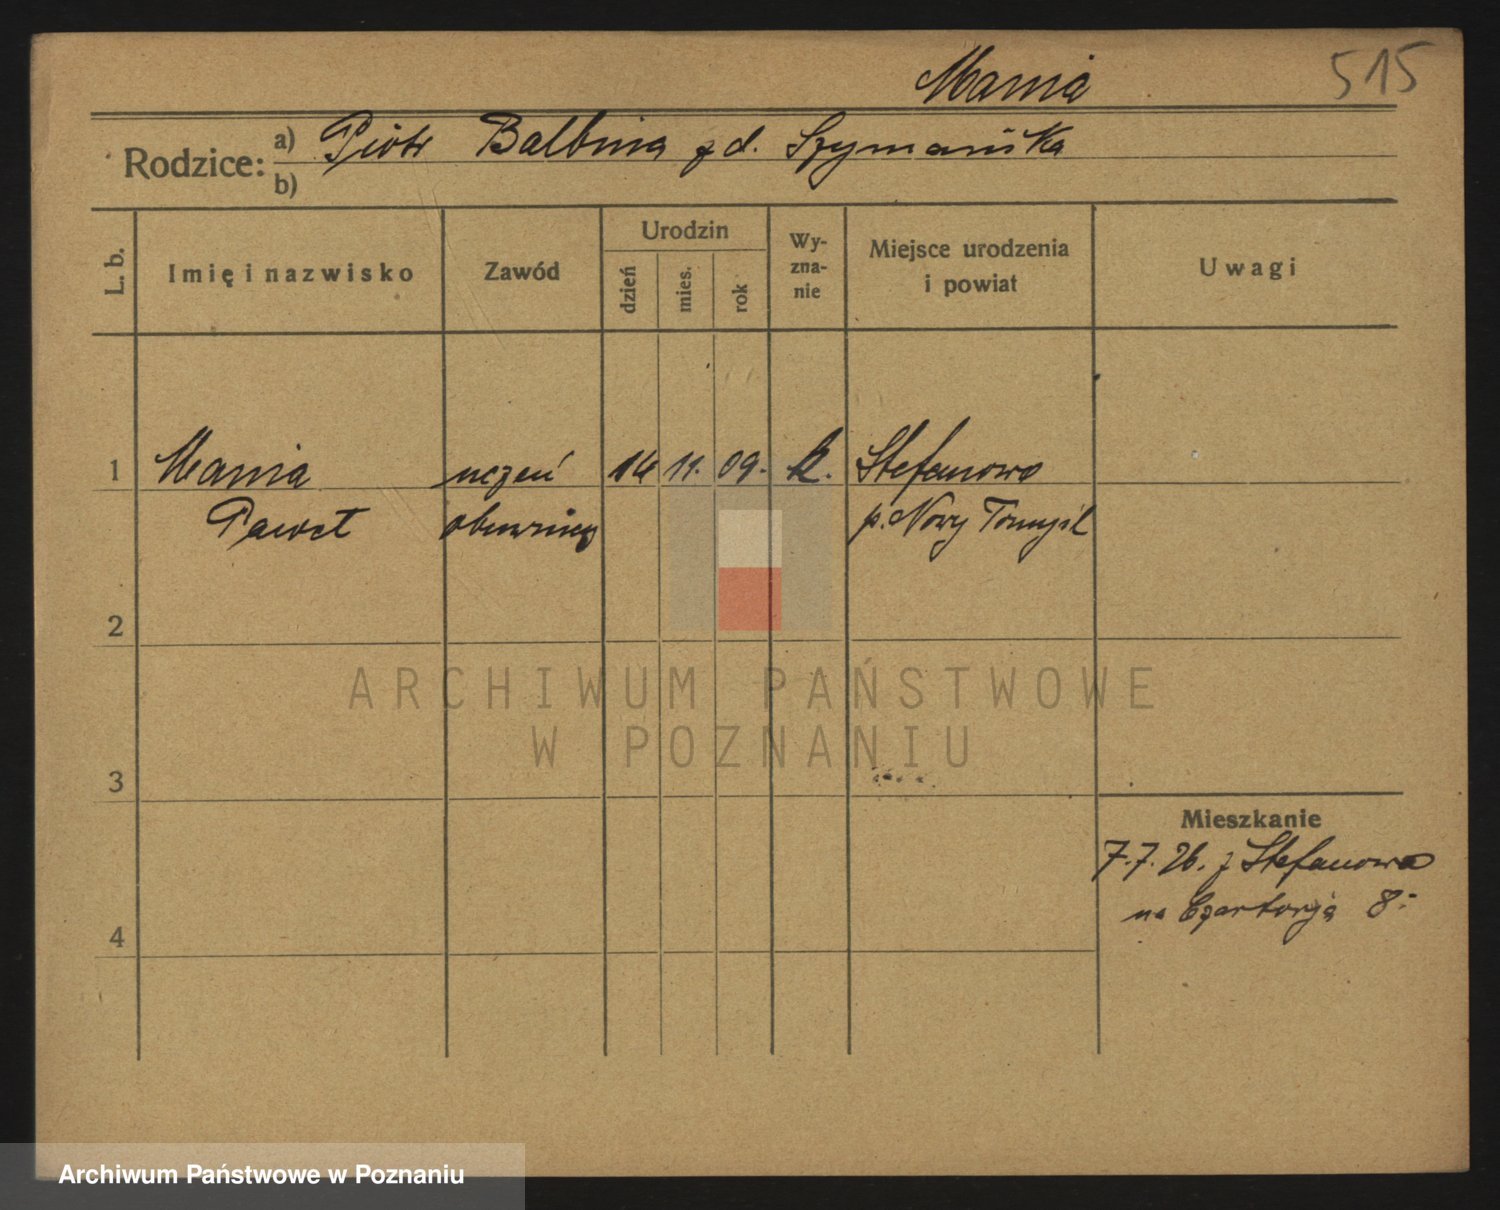 Mania
515
Rodzice: a) Piotr Balbina z d. Szymańska
b)
L. b.
Imię i nazwisko
Zawód
Urodzin
dzień
mies.
rok
Wy-
zna-
nie
Miejsce urodzenia
i powiat
Uwagi
1 Mania uczeń 14 11. 09. k. Stefanowo
Paweł obuwniczy p. Nowy Tomyśl
2
ARCHIWUM PAŃSTWOWE
W POZNANIU
3
Mieszkanie
7.7.26. z Stefanowa
na Czartorja 8.
4
Archiwum Państwowe w Poznaniu